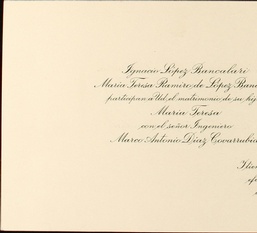 Ignacio López Bancalari
María Teresa Ramiro de López Ban
participan a Ud. el matrimonio de su hij
María Teresa
con el señor Ingeniero
Marco Antonio Díaz Covarrubia